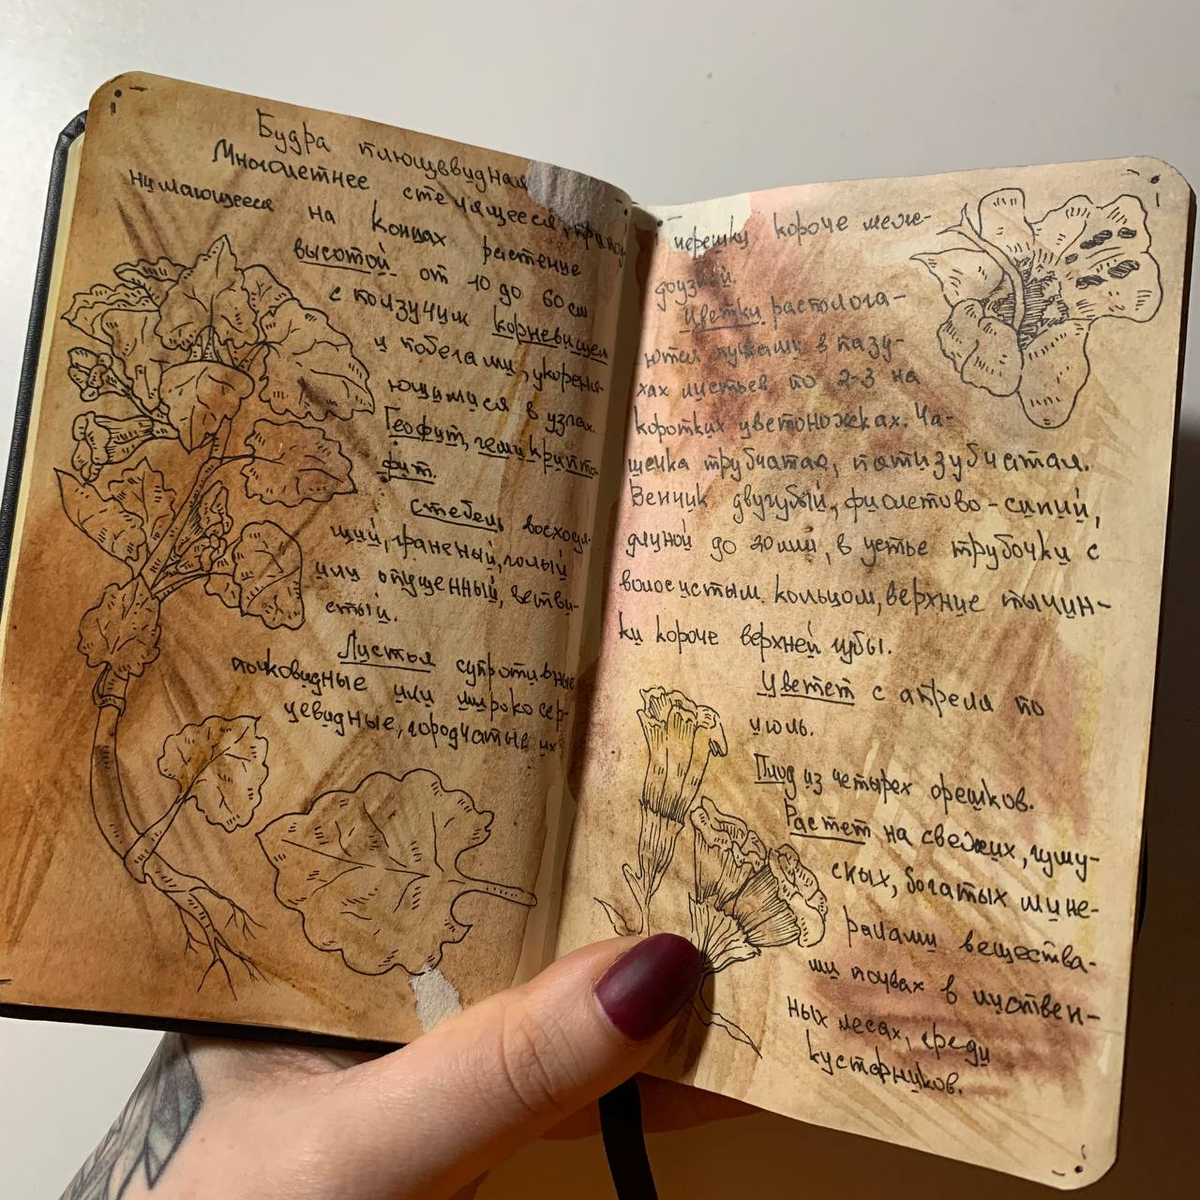 Будра плющевидная
Многолетнее стелящееся, припод-
нимающееся на концах растение
высотой от 10 до 60 см
с ползучим корневищем
и побегами, укореня-
ющимися в узлах.
Геофит, гемикрипто-
фит.
Стебель восходя-
щий, граненый, голый
или опушенный, ветви-
стый.
Листья супротивные
почковидные или широкосер-
цевидные, городчатые их
черешки короче меж-
доузлий.
Цветки располога-
ются пучками в пазу-
хах листьев по 2-3 на
коротких цветоножках. Ча-
шечка трубчатая, пятизубчатая.
Венчик двугубый, фиолетово-синий,
длиной до 20 мм, в устье трубочки с
волосистым кольцом, верхние тычин-
ки короче верхней губы.
Цветет с апреля по
июль.
Плод из четырех орешков.
Растет на свежих, гуму-
сных, богатых мине-
ралами вещества-
ми почвах в листвен-
ных лесах, среди
кустарников.